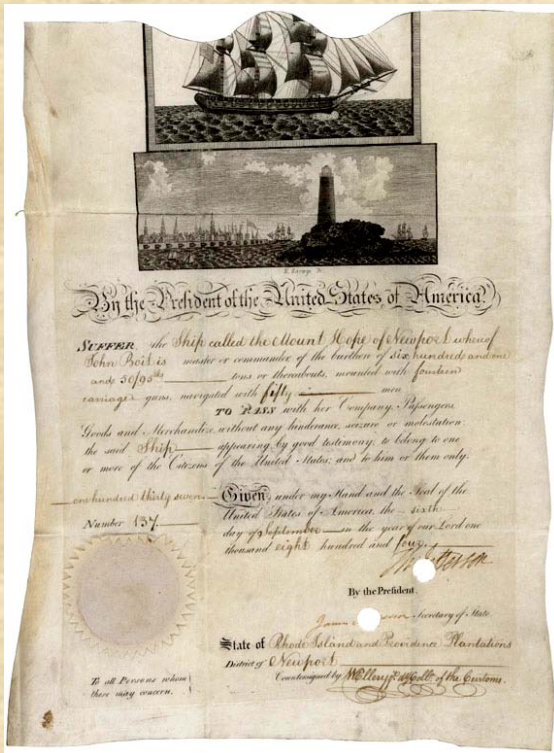 By the President of the United States of America,
SUFFER the Ship called the Mount Hope of Newport whereof
John Boit is master or commander of the burthen of six hundred and one
and 50/95ths tons or thereabouts, mounted with fourteen
carriage guns, navigated with fifty men
TO PASS with her Company, Passengers
Goods and Merchandize without any hinderance, seizure or molestation:
the said Ship appearing by good testimony, to belong to one
or more of the Citizens of the United States; and to him or them only.
one hundred thirty seven
Number 137.
Given under my Hand and the Seal of the
United States of America, the sixth
day of September in the year of our Lord one
thousand eight hundred and four.
By the President.
Secretary of State.
State of Rhode Island and Providence Plantations
District of Newport
Countersigned by Wm Ellery Collr. of the Customs.
To all Persons whom
these may concern.